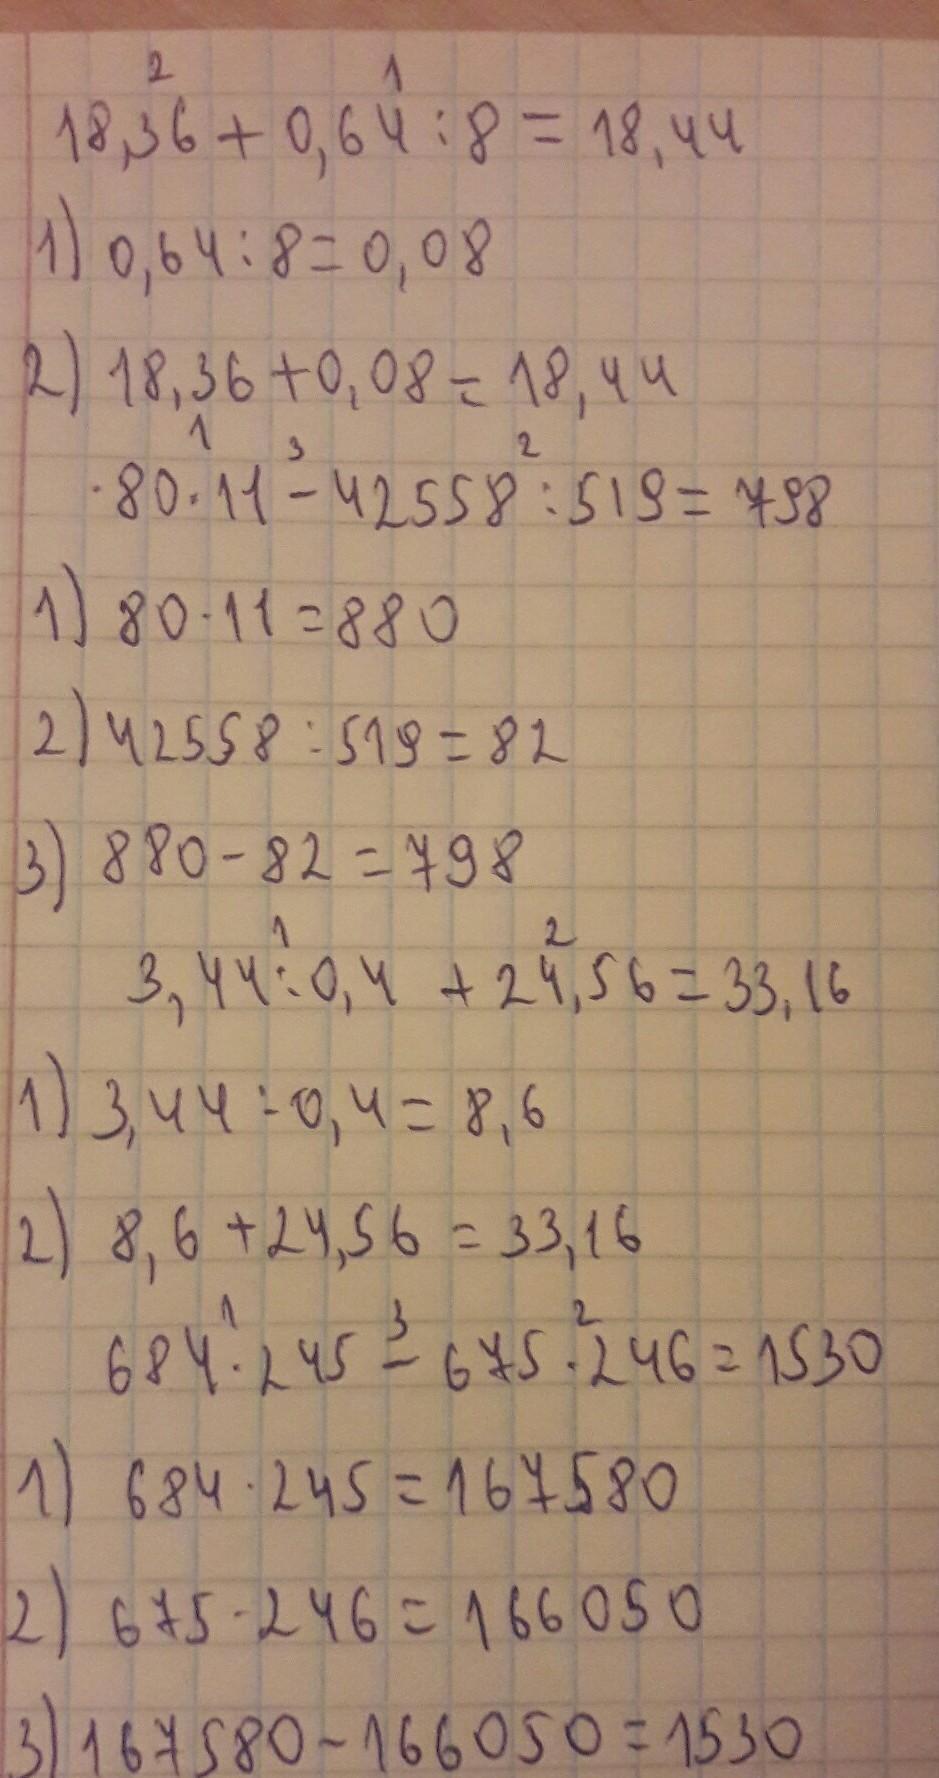 2 1
18,36 + 0,64 : 8 = 18,44
1) 0,64 : 8 = 0,08
2) 18,36 + 0,08 = 18,44
1 3 2
80 · 11 - 42558 : 519 = 798
1) 80 · 11 = 880
2) 42558 : 519 = 82
3) 880 - 82 = 798
1 2
3,44 : 0,4 + 24,56 = 33,16
1) 3,44 : 0,4 = 8,6
2) 8,6 + 24,56 = 33,16
1 3 2
684 · 245 - 675 · 246 = 1530
1) 684 · 245 = 167580
2) 675 · 246 = 166050
3) 167580 - 166050 = 1530